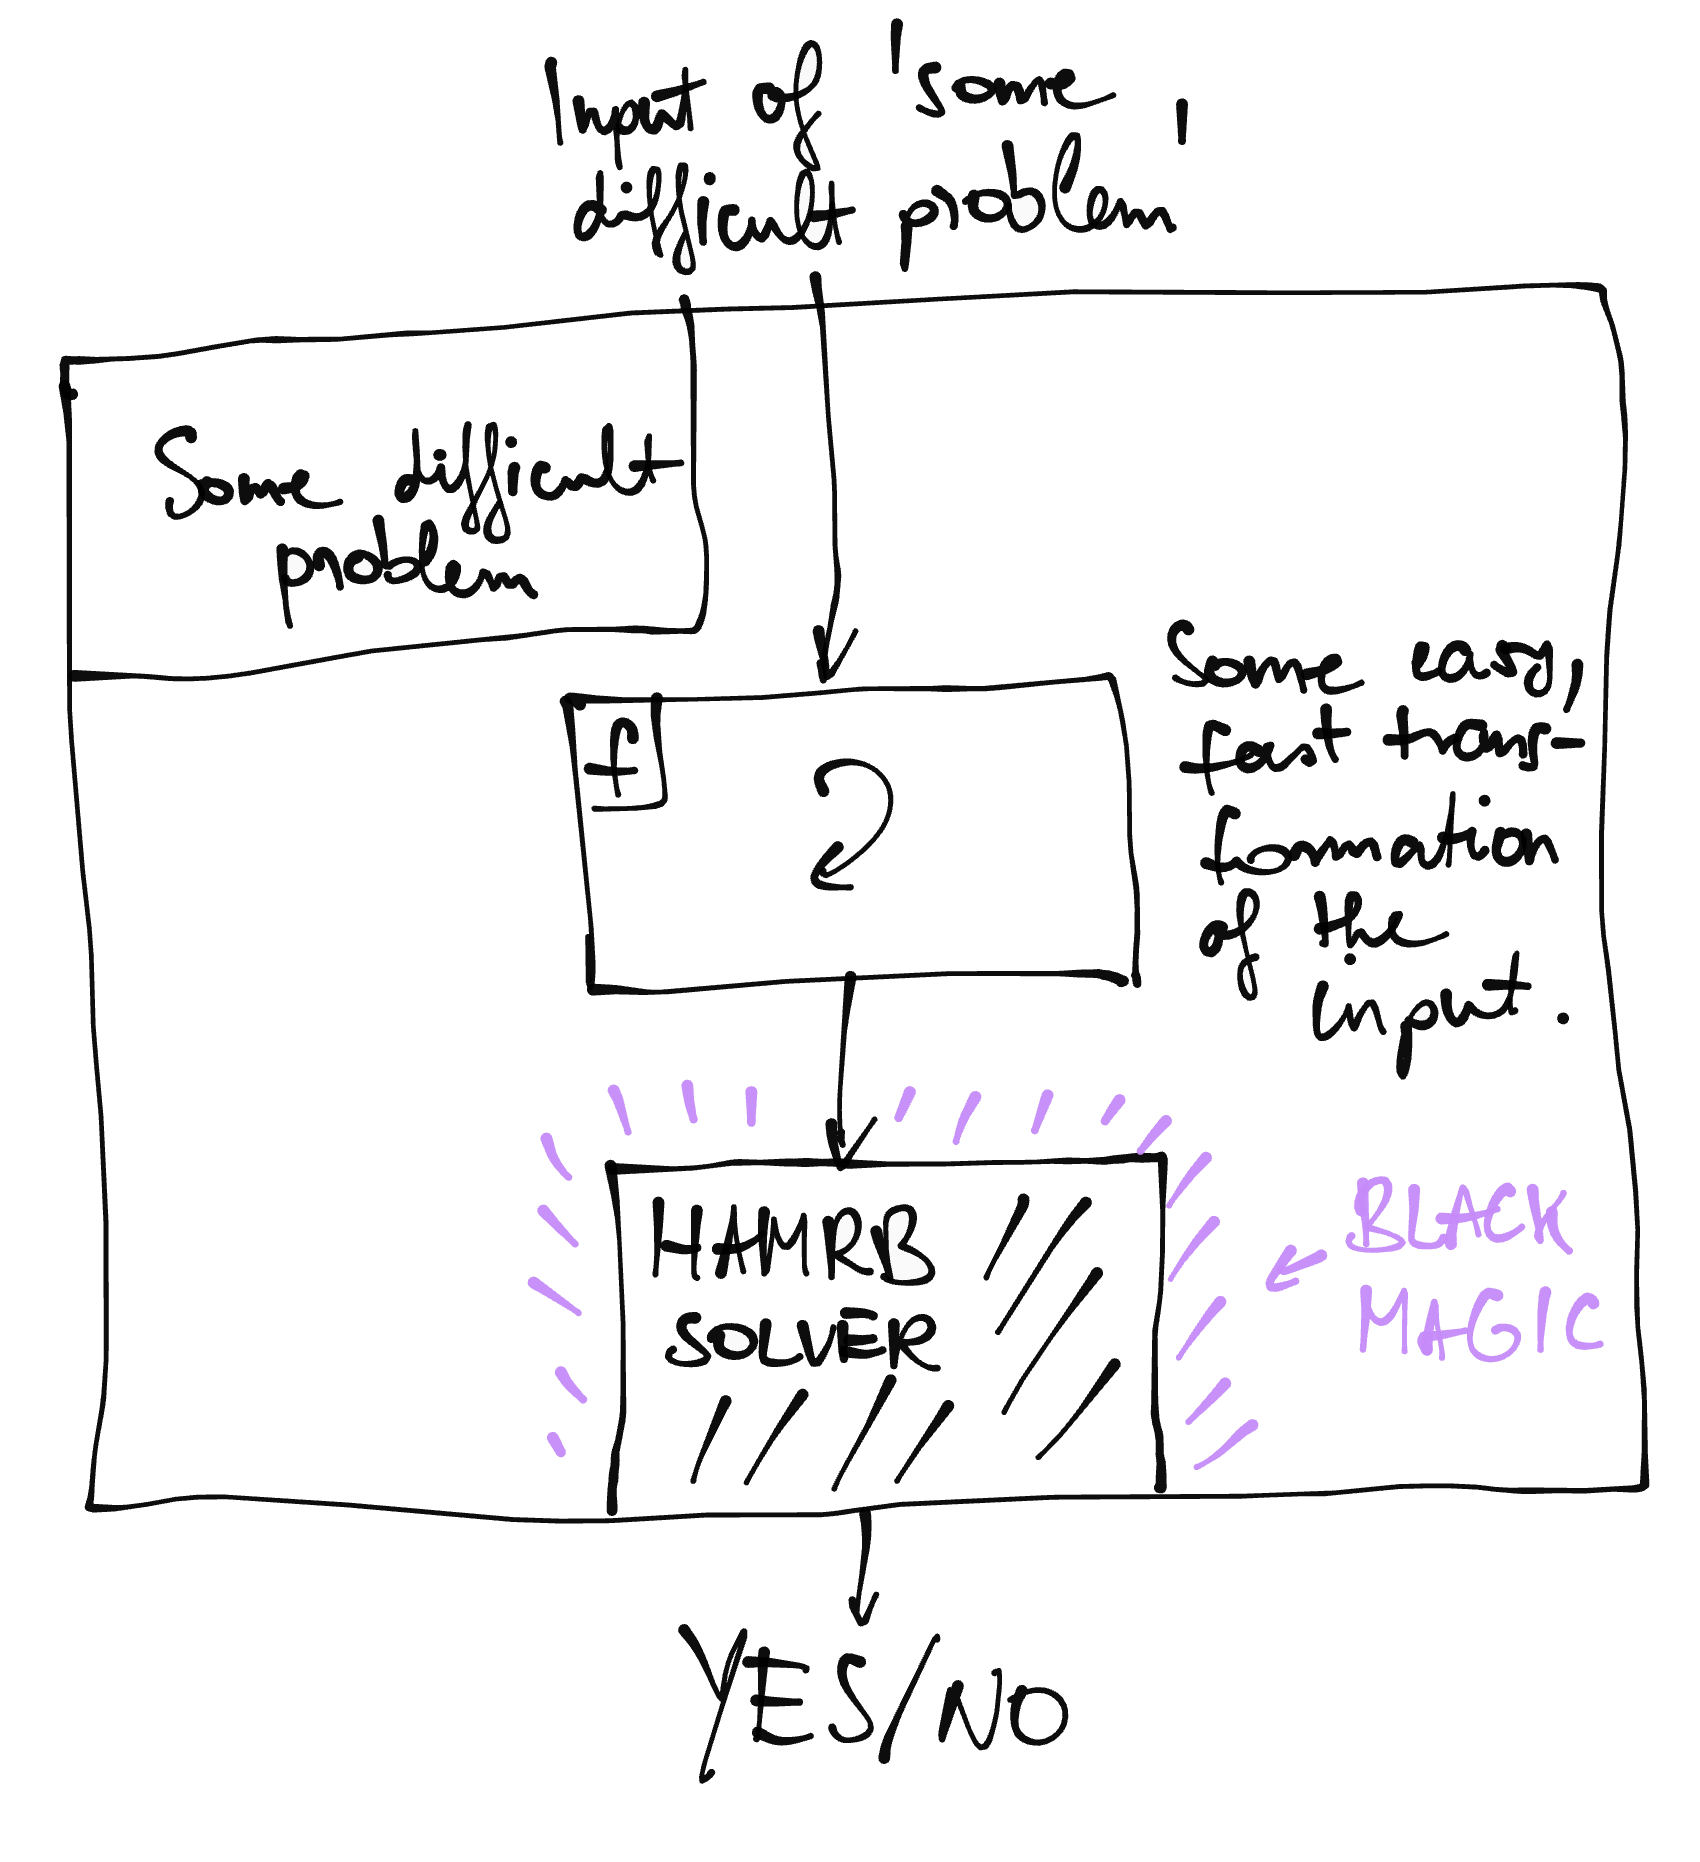 Input of 'some
difficult problem'
Some difficult
problem
f
Some easy,
fast trans-
formation
of the
input.
HAMRB
SOLVER
BLACK
MAGIC
YES/NO